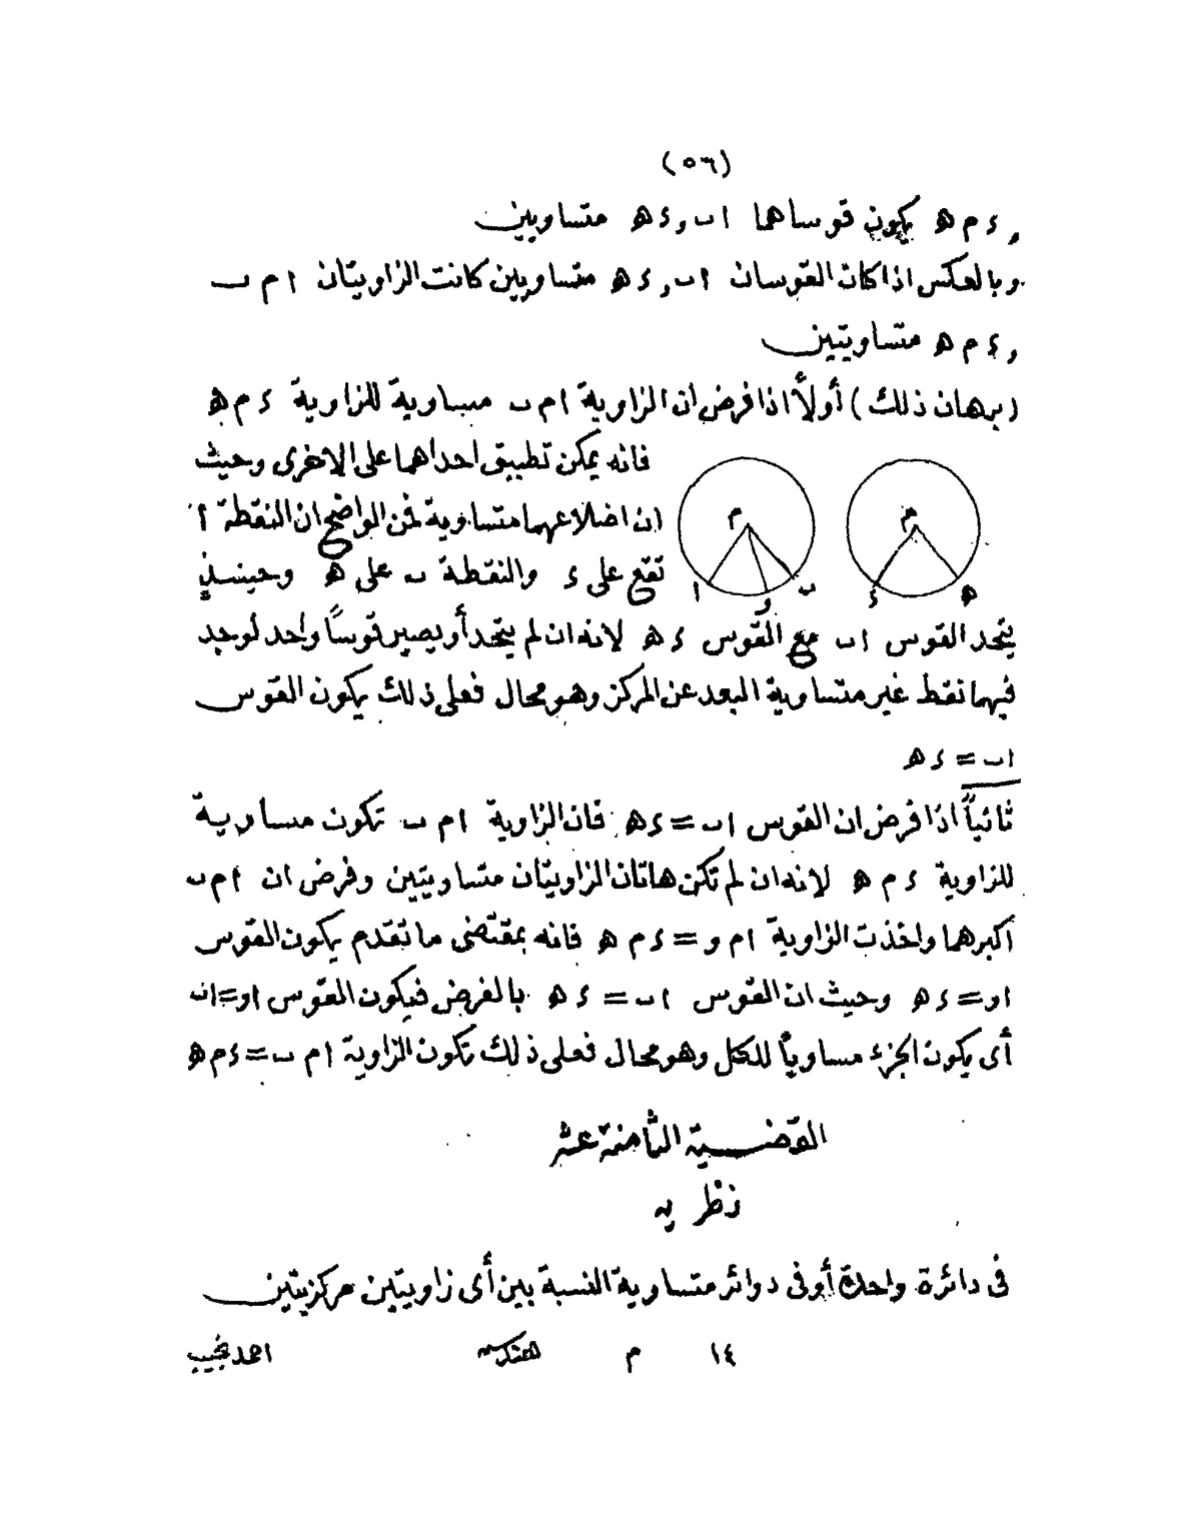 (٥٦)
و ء م ه يكون قوساهما ا ب و ء ه متساويين
وبالعكس اذا كان القوسان ا ب و ء ه متساويين كانت الزاويتان ا م ب
و ء م ه متساويتين
(برهان ذلك) أولاً اذا فرض ان الزاوية ا م ب مساوية للزاوية ء م ه
فانه يمكن تطبيق احداهما على الاخرى وحيث
ان اضلاعهما متساوية فمن الواضح ان النقطة ا
تقع على ء والنقطة ب على ه وحينئذٍ
م
ا و ب
م
ء ه
يتحد القوس ا ب مع القوس ء ه لانه ان لم يتحد أو يصير قوساً واحد لوجد
فيهما نقط غير متساوية البعد عن المركز وهو محال فعلى ذلك يكون القوس
ا ب = ء ه
ثانياً اذا فرض ان القوس ا ب = ء ه فان الزاوية ا م ب تكون مساوية
للزاوية ء م ه لانه ان لم تكن هاتان الزاويتان متساويتين وفرض ان ا م ب
اكبرهما واخذت الزاوية ا م و = ء م ه فانه بمقتضى ما تقدم يكون القوس
ا و = ء ه وحيث ان القوس ا ب = ء ه بالفرض فيكون القوس ا و = ا ب
أى يكون الجزء مساوياً للكل وهو محال فعلى ذلك تكون الزاوية ا م ب = ء م ه
القضية الثامنة عشر
نظريه
فى دائرة واحدة أو فى دوائر متساوية النسبة بين أى زاويتين مركزيتين
١٤ م هندسه احمد نجيب